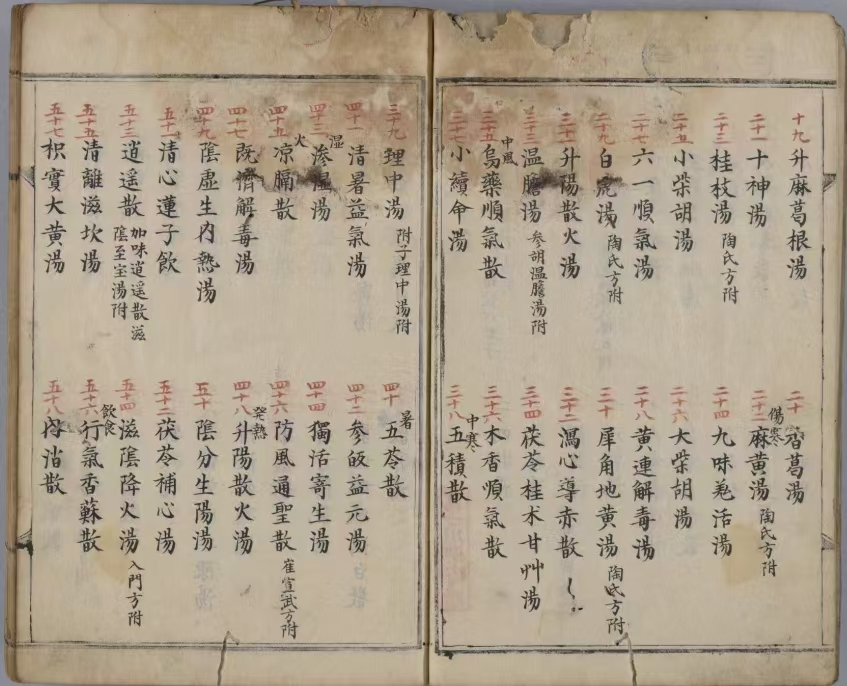 十九 升麻葛根湯
二十 香葛湯
二十一 十神湯
傷寒
二十二 麻黄湯 陶氏方附
二十三 桂枝湯 陶氏方附
二十四 九味羗活湯
二十五 小柴胡湯
二十六 大柴胡湯
二十七 六一順氣湯
二十八 黄連解毒湯
二十九 白虎湯 陶氏方附
三十 犀角地黄湯 陶氏方附
三十一 升陽散火湯
三十二 瀉心導赤散
三十三 温膽湯 参胡温膽湯附
三十四 茯苓桂术甘艸湯
中風
三十五 烏藥順氣散
三十六 木香順氣散
三十七 小續命湯
中寒
三十八 五積散
三十九 理中湯 附子理中湯附
暑
四十 五苓散
四十一 清暑益氣湯
四十二 参皈益元湯
湿
四十三 滲湿湯
四十四 獨活寄生湯
火
四十五 凉膈散
四十六 防風通聖散 崔宣武方附
四十七 既濟解毒湯
發熱
四十八 升陽散火湯
四十九 陰虚生内熱湯
五十 陰分生陽湯
五十一 清心蓮子飲
五十二 茯苓補心湯
五十三 逍遥散 加味逍遥散滋陰至宝湯附
五十四 滋陰降火湯 入門方附
五十五 清離滋坎湯
飲食
五十六 行氣香蘇散
五十七 枳實大黄湯
五十八 散